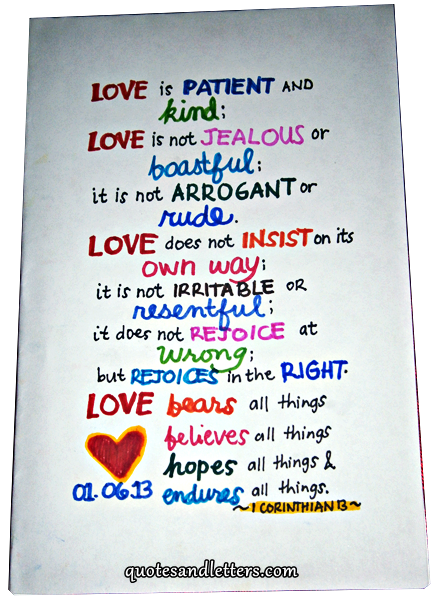 LOVE is PATIENT AND
kind;
LOVE is not JEALOUS or
boastful;
it is not ARROGANT or
rude.
LOVE does not INSIST on its
own way;
it is not IRRITABLE OR
resentful;
it does not REJOICE at
wrong;
but REJOICES in the RIGHT.
LOVE bears all things
believes all things
hopes all things &
endures all things.
01.06.13
~1 CORINTHIAN 13~
quotesandletters.com